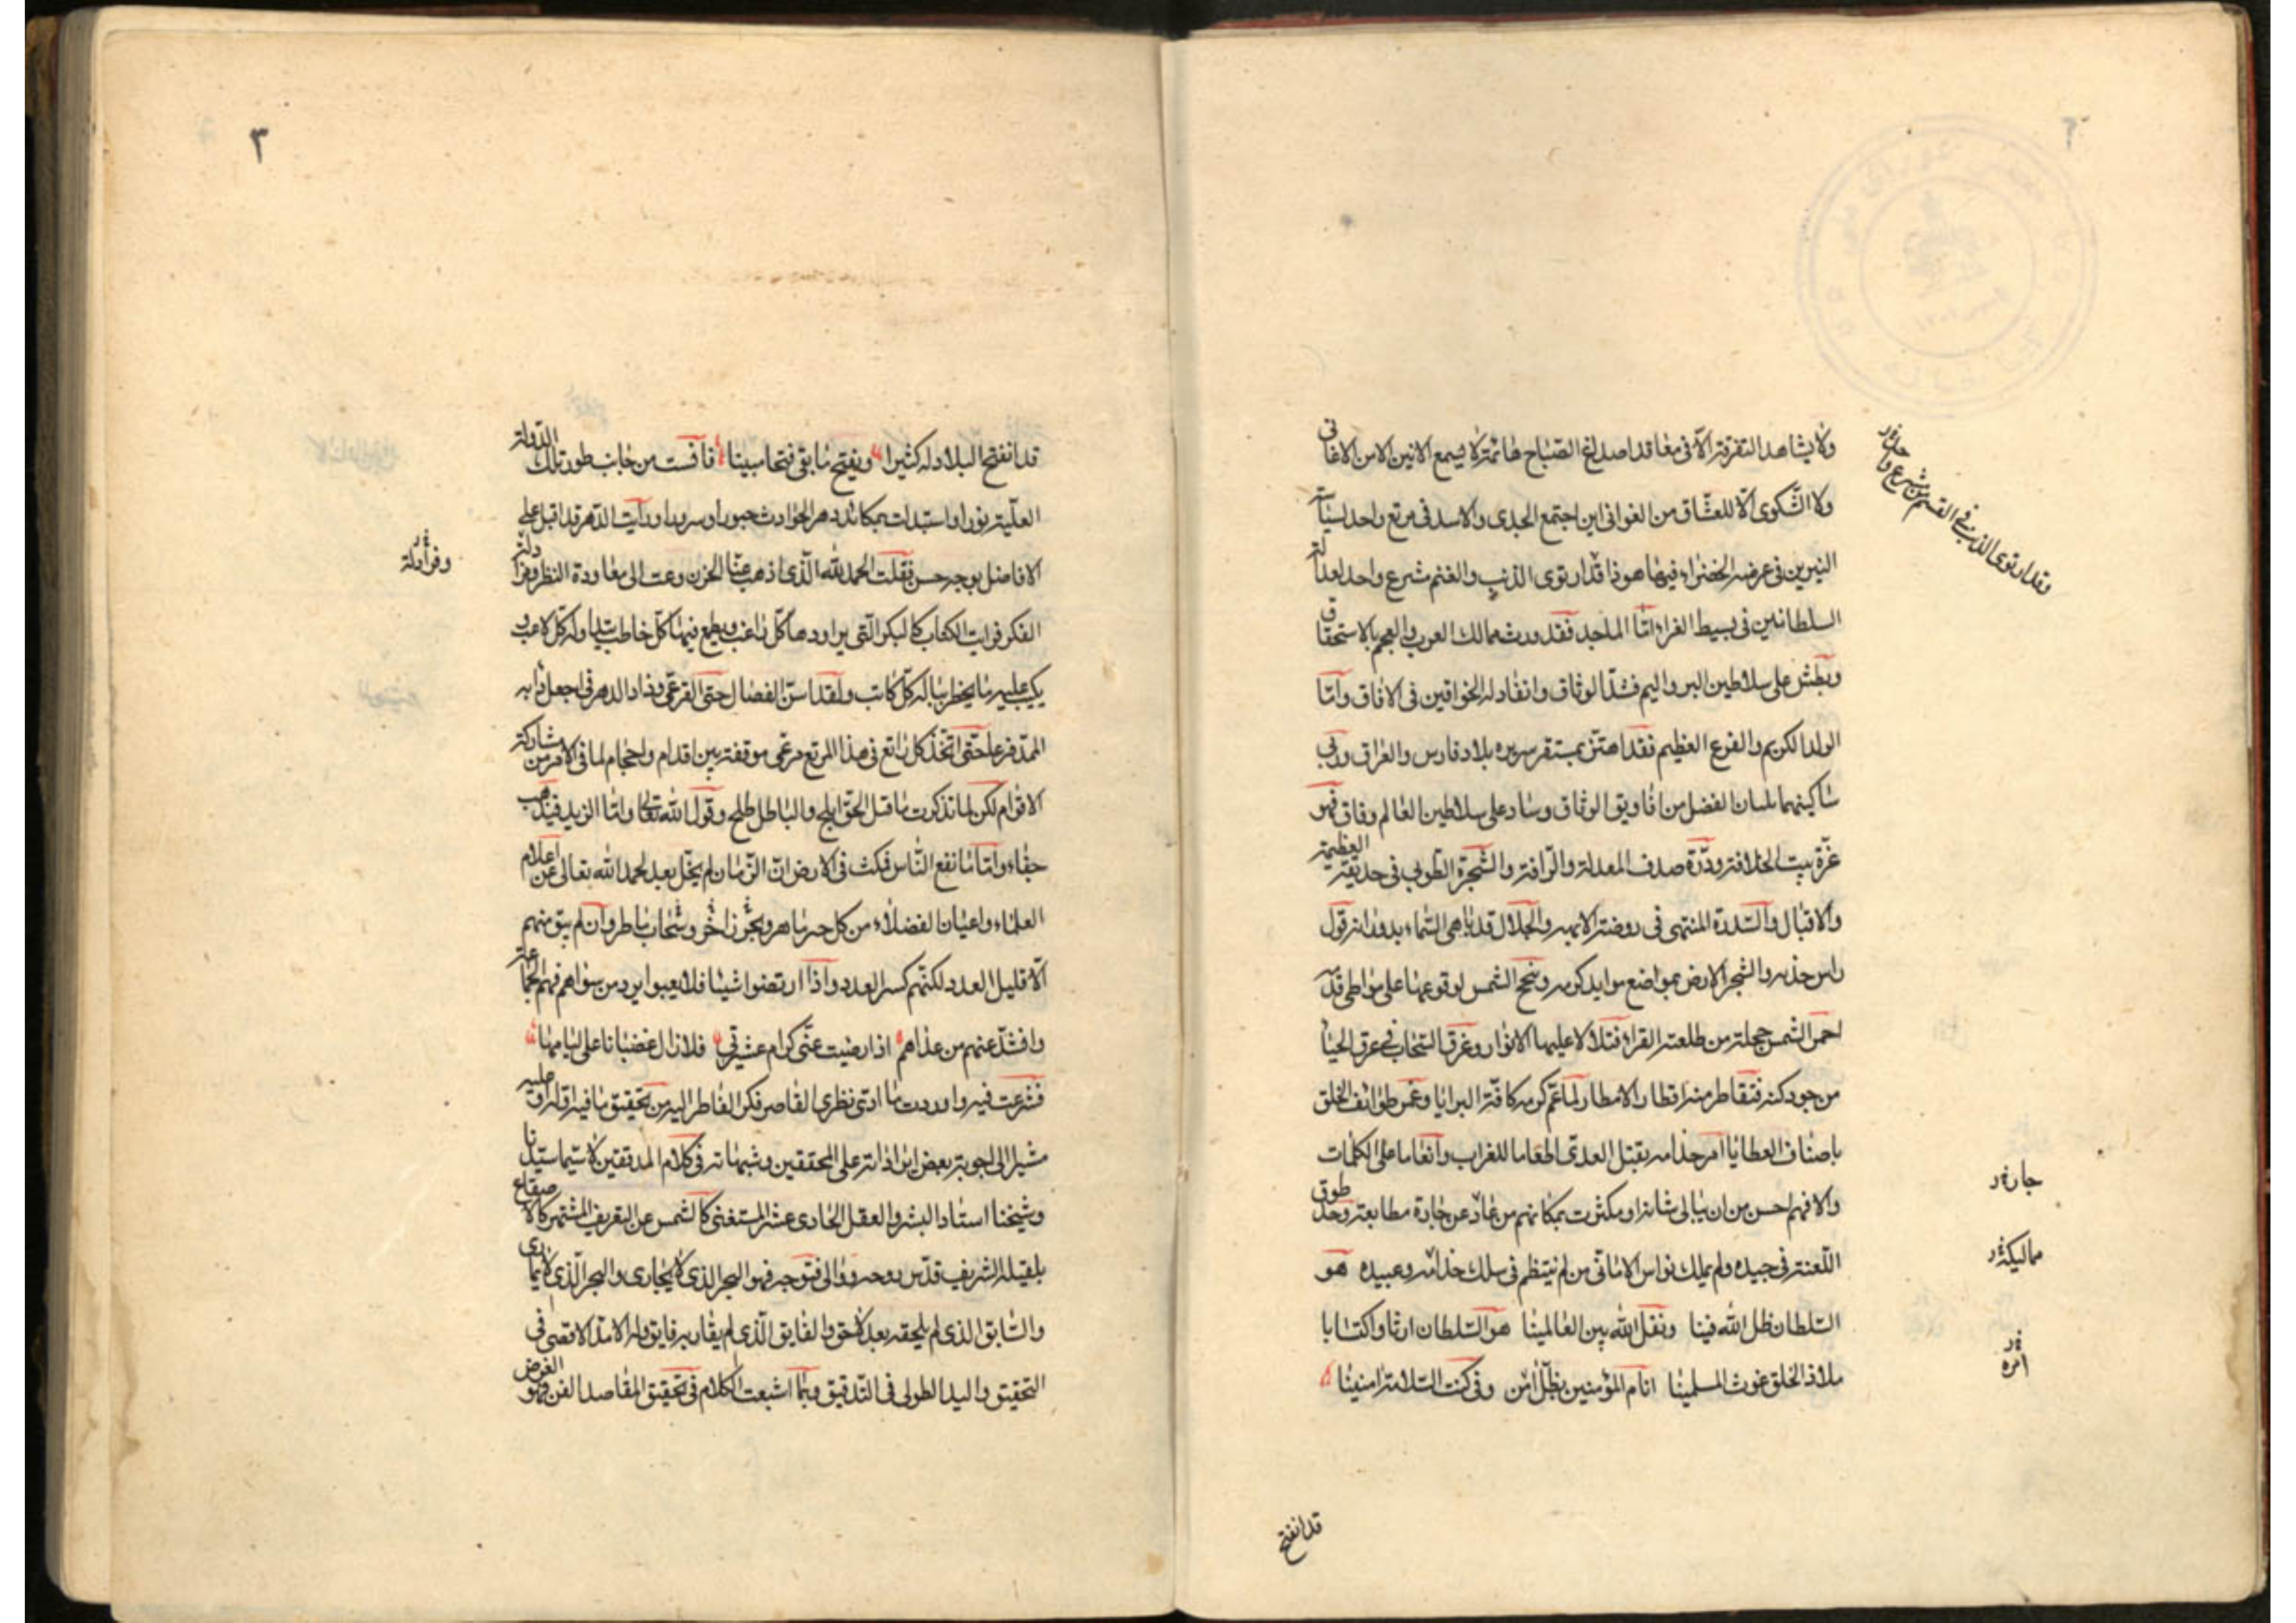 ولا يشاهد التفرقة الا فى معاقد اصداغ الصباح هائمة لا يسمع الانين الا من الاغانى
ولا الشكوى الا للعشاق من الغوانى اين اجتمع الجدى والاسد فى مرتع واحد لسياسة
النيرين فى عرضه الخضراء فيها هو ذا قد ارتوى الذئب والغنم مشرع واحد لعدالة
السلطانين فى بسيط الغبراء اما الماجد فقد ورث ممالك العرب والعجم بالاستحقاق
وبطش على سلاطين البر واليم فشد الوثاق وانقاد له الخواقين فى الافاق واما
الولد الكريم والفرع العظيم فقد اهتز بمستقر سريره بلاد فارس والعراق وربى
ساكنيهما بلسان الفضل من افاويق الوفاق وساد على سلاطين العالم وفاق فهو
غرة بيت الخلافة ودرة صدف المعدلة والرافة والشجرة الطوبى فى حديقة العظمة
والاقبال والسدرة المنتهى فى روضة الابهة والجلال قد باهى السماء بدورانه قول
راس خدمه والشجر الارض بمواضع موايد كرمه ونجح الشمس لوقوعها على مواطى قدمه
احمر الشمس خجلة من طلعته الغراء فتلألأ عليها الانوار وغرق السحاب فى عرق الحياء
من جود كفه فتقاطر منه اقطار الامطار لما عم كرمه كافة البرايا وغمر طوائف الخلق
باصناف العطايا امر خدامه بقتل العدى اطعاما للغراب وانعاما على الكلاب
والا فهم احسن من ان يبالى شانه او مكثرت بمكانهم من عاد عن جادة مطابعته وجد طوق
اللعنة فى جيده ولم يملك نواس الامانى من لم ينتظم فى سلك خدامه وعبيده هو
السلطان ظل الله فينا ونقل الله بين العالمينا هو السلطان ارثا واكتسابا
ملاذ الخلق غوث المسلمينا انام المؤمنين بظل امن وفى كنف السلامة امنينا
وقد ارتوى الذئب فى القسم من مشرع واحد
جاره
مماليكه
امره
قد انفتح
٣
قد انفتح البلاد له كثيرا ويفتح ما بقى فتحا مبينا فآنست من جانب طور تلك الدولة
العلية نورا واستبدلت بمكائد دهر الحوادث حبورا وسرورا ورأيت الدهر قد اقبل على
الافاضل بوجه حسن فقلت الحمد لله الذى اذهب عنا الحزن وعدت الى معاودة النظر ومزاولة
الفكر فرايت الكتاب كالبكر التى يراودها كل راغب ويطمع فيها كل خاطب يتداوله كل لاعب و
يكتب عليه ما يخطر بباله كل كاتب ولقد استن الفصال حتى القرعى وزاد الدهر فى اجعل ذا به
الممد فرعا حتى اتخذ كل راتع فى هذا المرتع مرعى موقفة بين اقدام واحجام لما فى الامر من مشاركة
الاقوام لكن لما تذكرت ما قيل الحق ابلج والباطل لجلج وقول الله تعالى واما الزبد فيذهب
جفاء واما ما ينفع الناس فيمكث فى الارض ان الزمان لم يخل بعد بحمد الله تعالى عن اعلام
العلماء واعيان الفضلاء من كل حبر ماهر وبحر زاخر وسحاب ماطر وان لم يبق منهم
الا قليل العدد لكنهم كسر العدد واذا ارتضوا شيئا فلا يعبوا بردّ من سواهم فهم الجماعة
وافشد عنهم من عداهم اذا رضيت عنى كرام عشيرتى فلا زال غضبانا على لئامها
فشرعت فيه واوردت ما ادى نظرى القاصر فكر الفاطر اليه من تحقيق ما فيه اوله او عليه
مشيرا الى اجوبة بعض ايراداته على المحققين وشبهاته فى كلام المدققين لا سيما سيدنا
وشيخنا استاد البشر والعقل الحادى عشر المستغنى كالشمس عن التعريف المشتهر كالاصقاع
بلقبه الشريف قدس روحه ووالى فتوحه فهو البحر الذى لا يجارى والبحر الذى لا يمارى
والسابق الذى لم يلحقه بعد لاحق والفايق الذى لم يقاربه فايق وله الامد الاقصى فى
التحقيق واليد الطولى فى التدقيق وربما اشبعت الكلام فى تحقيق المقاصد الفن وهو الغرض
ومزاولة